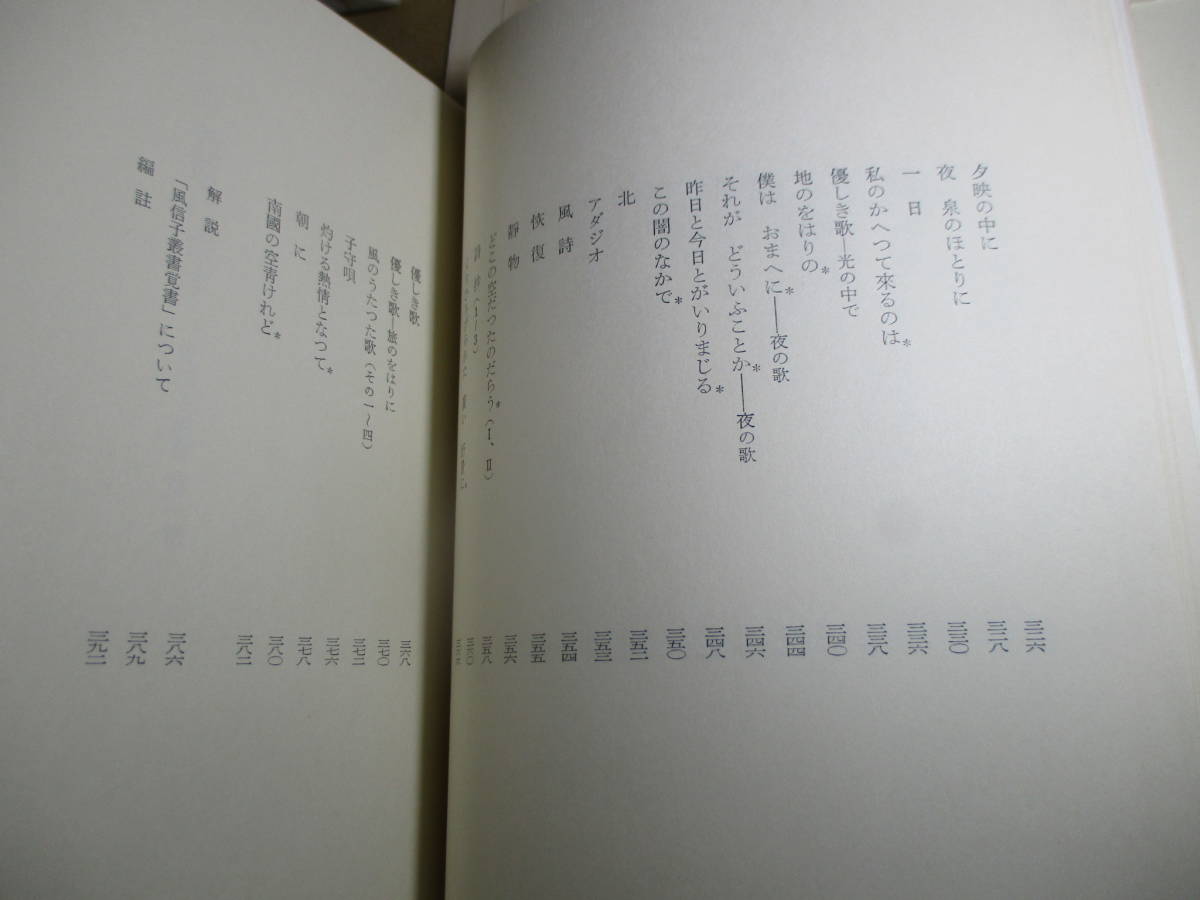 夕映の中に 三二六
夜 泉のほとりに 三二八
一日 三三〇
私のかへつて來るのは* 三三六
優しき歌―光の中で 三三八
地のをはりの* 三四〇
僕は おまへに*――夜の歌 三四四
それが どういふことか*――夜の歌 三四六
昨日と今日とがいりまじる* 三四八
この闇のなかで* 三五〇
北 三五二
アダジオ 三五三
風詩 三五四
恢復 三五五
靜物 三五六
どこの空だつたのだらう*(Ⅰ、Ⅱ) 三五八
三六〇
優しき歌 三六八
優しき歌―旅のをはりに 三七〇
風のうたつた歌(その一~四) 三七二
子守唄 三七六
灼ける熱情となつて* 三七八
朝に 三八〇
南國の空靑けれど* 三八二
解説 三八六
「風信子叢書覚書」について 三八九
編註 三九二